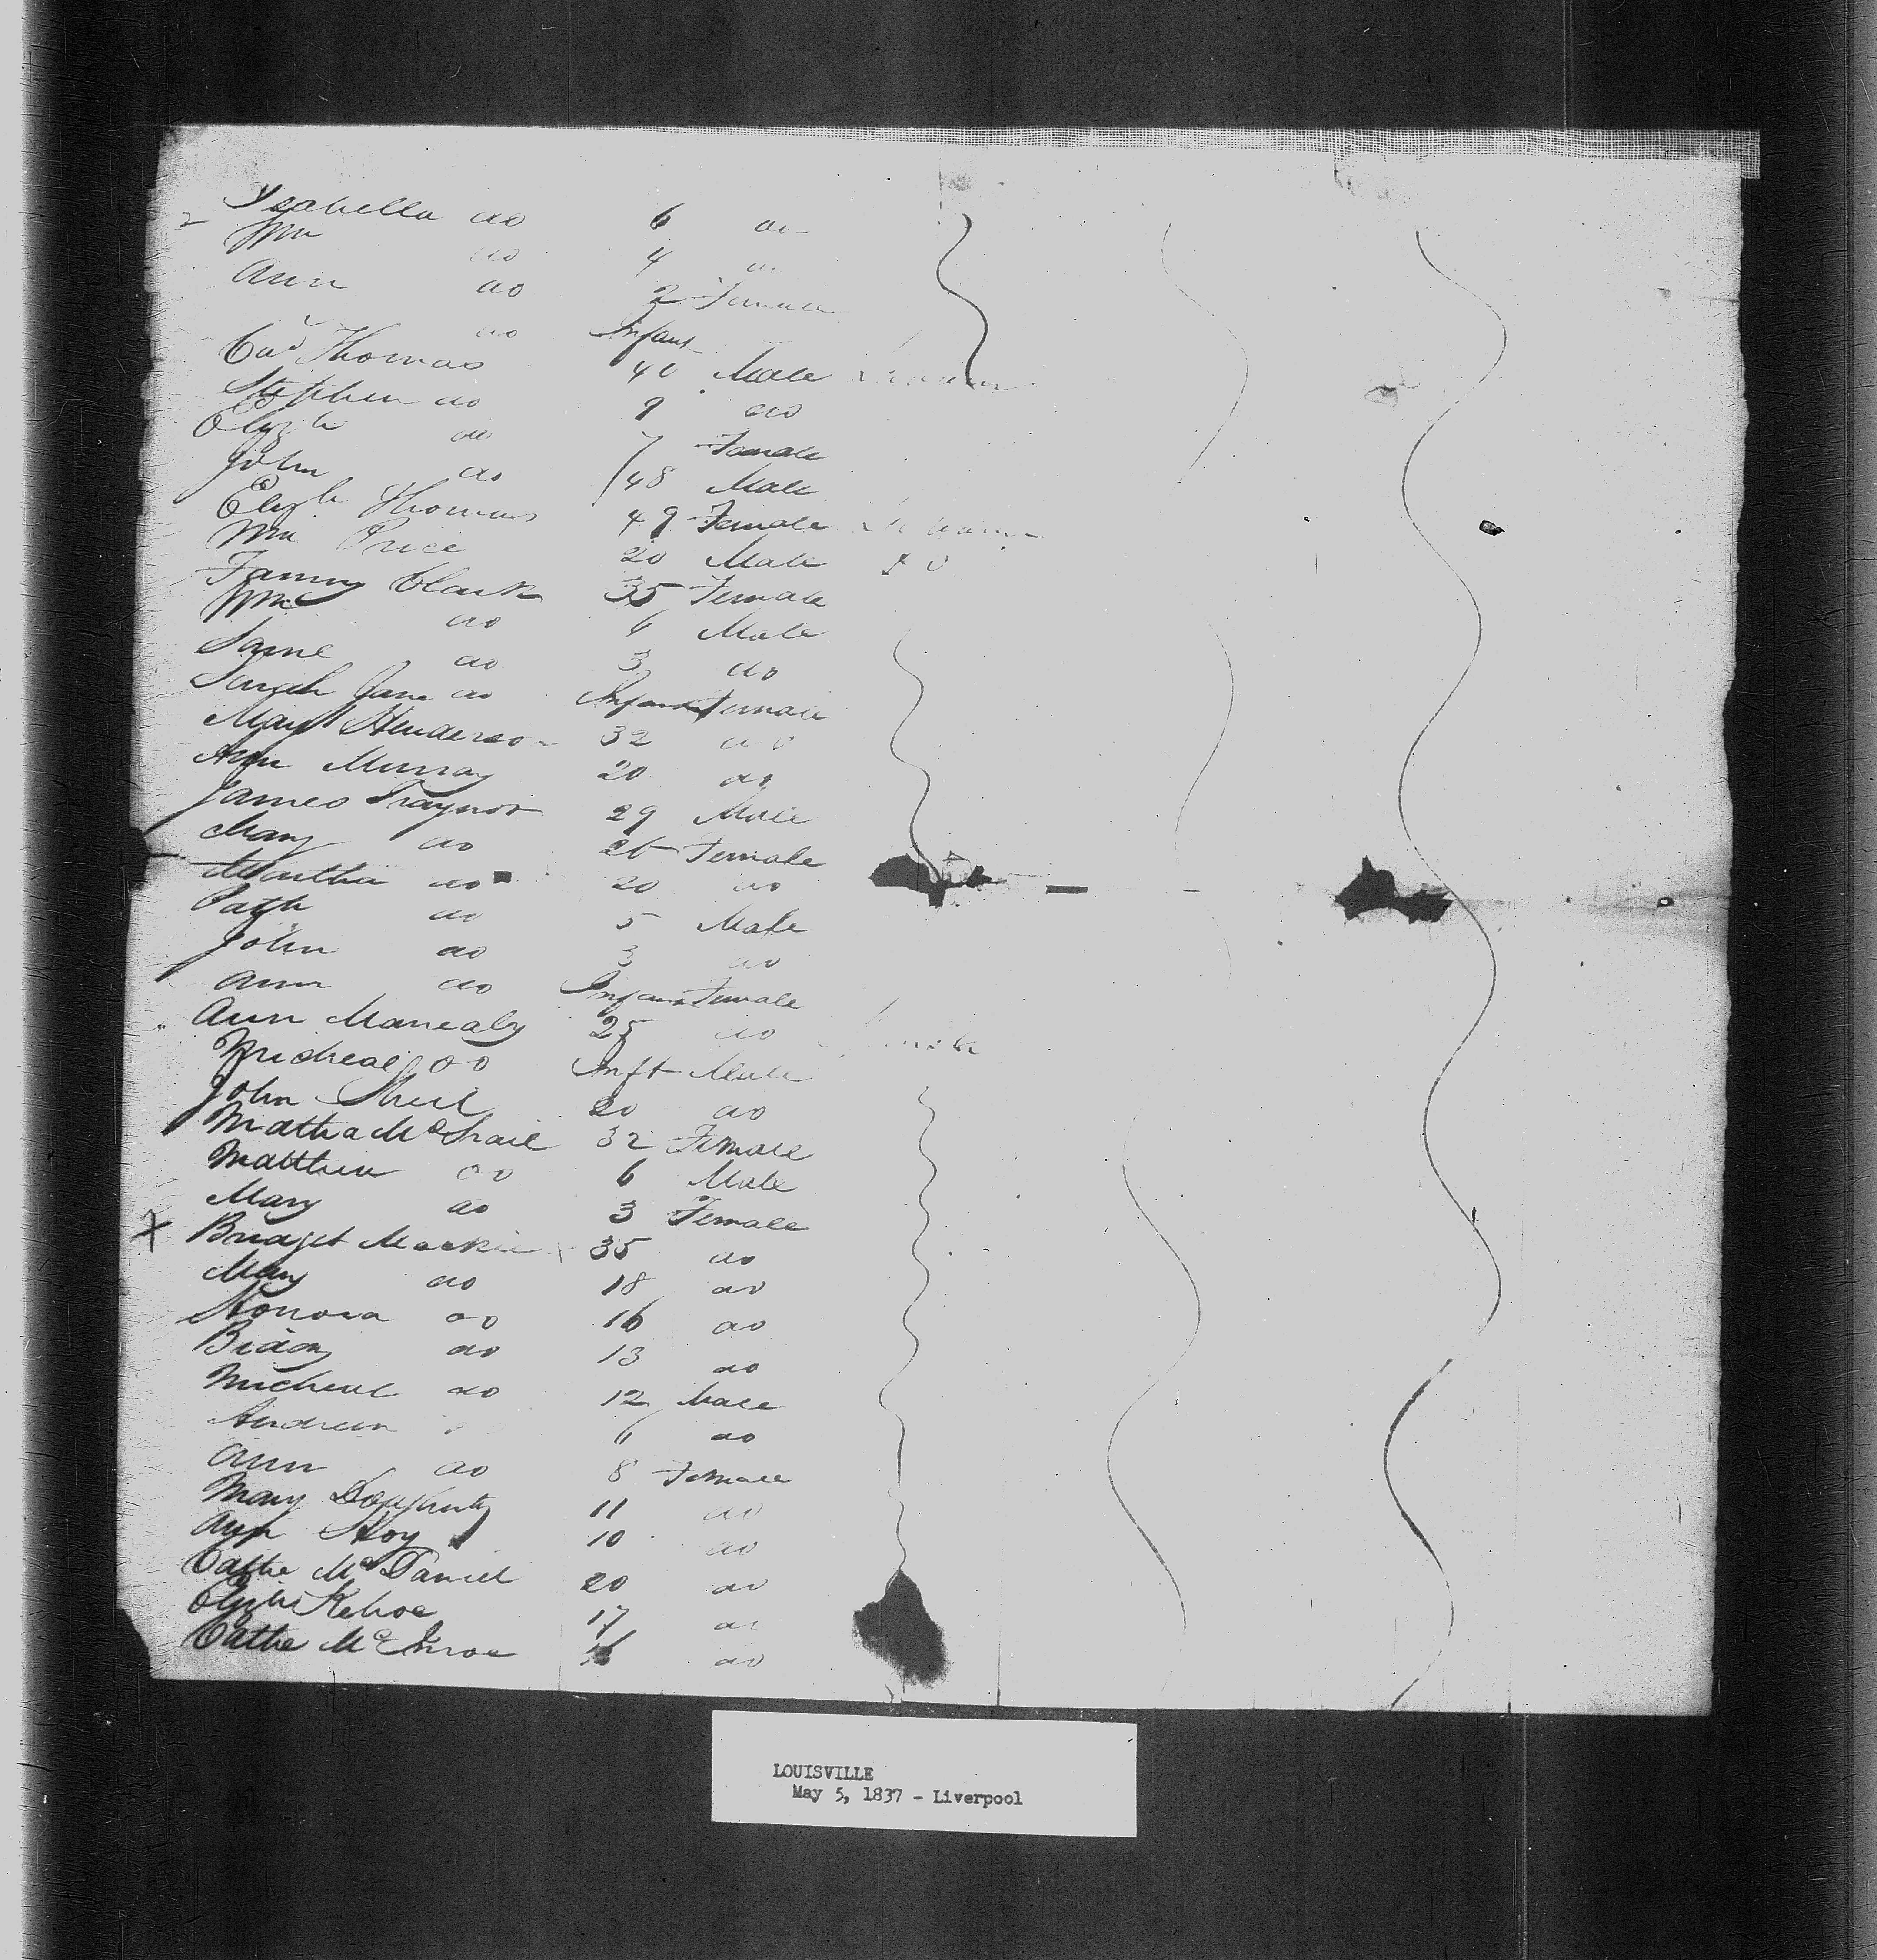 Isabella do 6 do
Wm do 4 do
Ann do 2 Female
do Infant
Edwd Thomas 40 Male
Stephen do 9 do
Elizth do 7 Female
John do 48 Male
Elizth Thomas 49 Female
Wm Price 20 Male
Fanny Clark 35 Female
Wm do 6 Male
Saml do 3 do
Sarah Jane do Infant Female
Mary Henderson 32 do
Ann Murray 20 do
James Traynor 29 Male
Mary do 26 Female
Martha do 20 do
Patk do 5 Male
John do 3 do
Ann do Infant Female
Ann Manealy 25 do
Micheal do Inft Male
John Sheil 20 do
Martha McShail 32 Female
Matthew do 6 Male
Mary do 3 Female
X Bridget Mackie 35 do
Mary do 18 do
Honora do 16 do
Biddy do 13 do
Micheal do 12 Male
Andrew 6 do
Ann do 8 Female
Mary Dougherty 11 do
Ann Hoy 10 do
Cathe McDaniel 20 do
Elizth Kehoe 17 do
Cathe McEnroe do
LOUISVILLE
May 5, 1837 - Liverpool